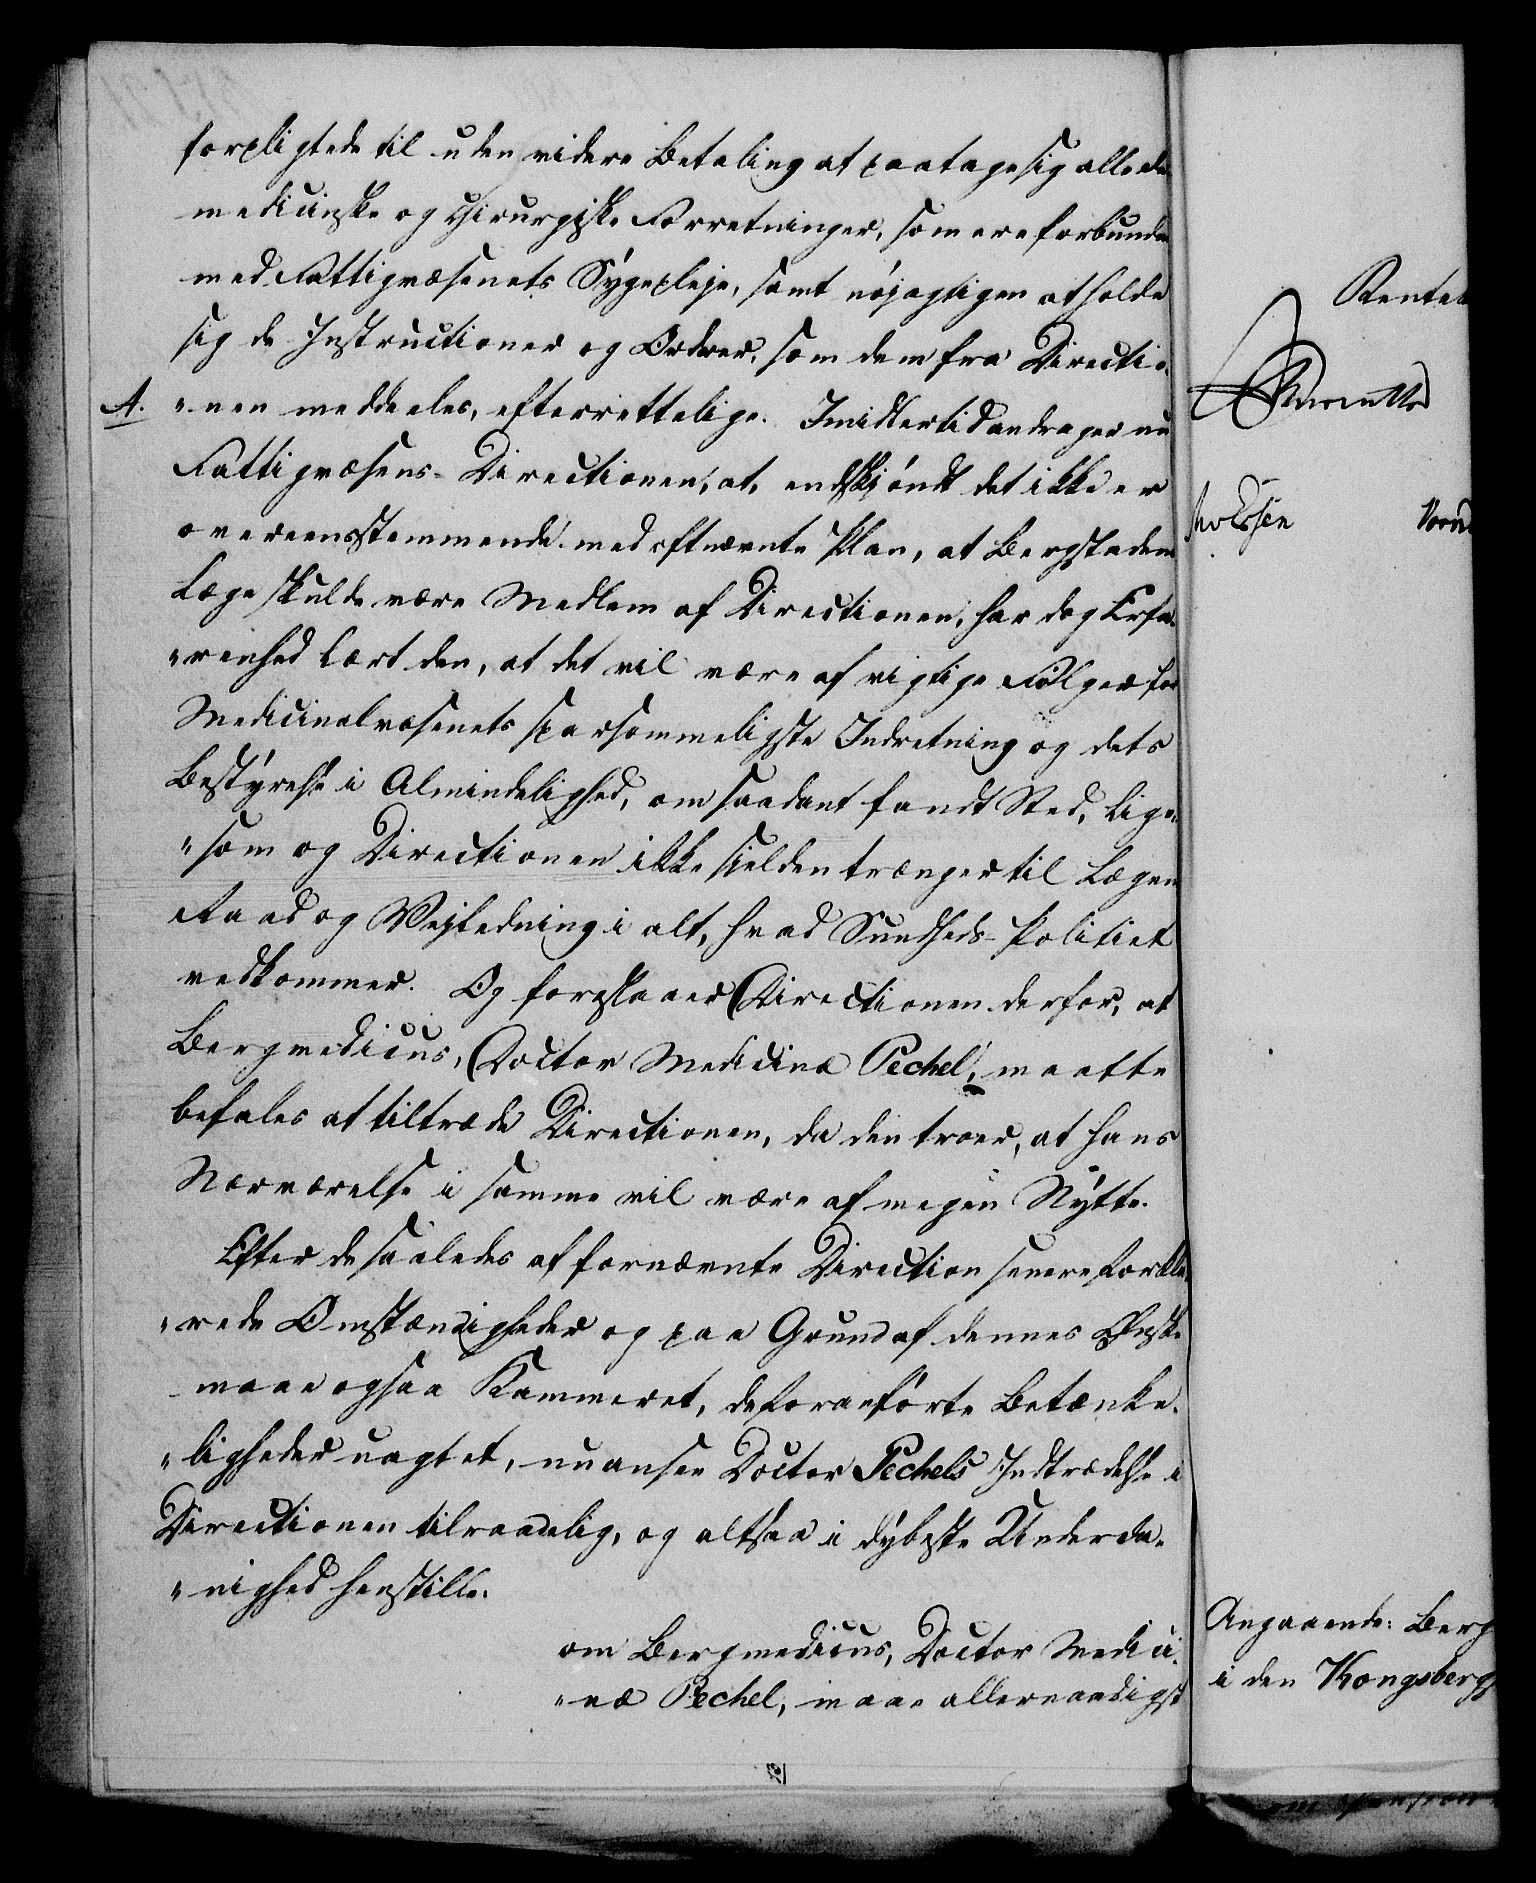 forpligtede til uden videre Betaling at paatage sig alle de
medicinske og chirurgiske Forretninger, som ere forbundne
med Fattigvæsenets Sÿgepleje, samt nøjagtigen at holde
sig de Instructioner og Ordrer, som dem fra Directio-
A.
"nen meddeeles, efterrettelige. Imidlertid andrager nu
Fattigvæsens-Directionen, at, endskjøndt det ikke er
overeensstemmende med oftnævnte Plan, at Bergstadens
Læge skulde være Medlem af Directionen, har dog Erfa-
"renhed lært den, at det vil være af vigtige Følger for
Medicinalvæsenets sparsommeligste Indretning og dets
Bestÿrelse i Almindelighed, om saadant fandt Sted, lige-
"som og Directionen ikke sielden trænger til Lægens
Raad og Vejledning i alt, hvad Sundheds-Politiet
vedkommer. Og foreslaaer Directionen derfor, at
Bergmedicus, Doctor Medicinæ Pechel, maatte
befales at tiltræde Directionen, da den troer, at hans
Nærværelse i samme vil være af megen Nÿtte.
Efter de saaledes af fornævnte Direction senere forkla-
"rede Omstændigheder og paa Grund af dennes Ønske
maae ogsaa Kammeret, de foranførte Betænke-
"ligheder uagtet, nu ansee Doctor Pechels Indtrædelse i
Directionen tilraadelig, og altsaa i dÿbeste Underda-
"nighed henstille:
om Bergmedicus, Doctor Medici-
"næ Pechel, maae allernaadigst
Rente
Angaaende: Berg
i den Kongsberg